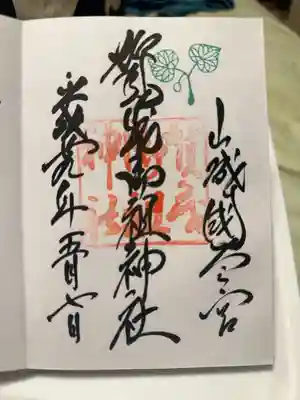 山城國一之宮
賀茂御祖神社
賀茂
御祖
神社
年五月七日